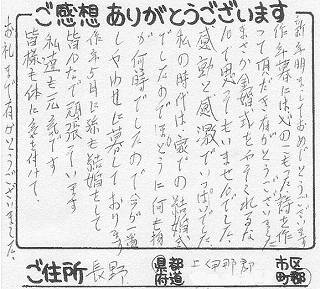 ご感想ありがとうございます
新年明ましておめでとうございます
昨年暮には心のこもった詩を作
って頂だき有がとうございました
まさか金婚式をやってくれるな
んて思ってもいませんでした。
感動と感激でいっぱいでした。
私の時代は、家での結婚式
でしたのでほんとうに何も
が何時でしたので今が一番
しやわせに暮しております
昨年5月に孫も結婚をして
皆んなで頑張っています
私達も元気です
皆様も体に気を付けて、
お礼まで有がとうございました。
ご住所 長野 都道府県 上伊那郡 市区町郡